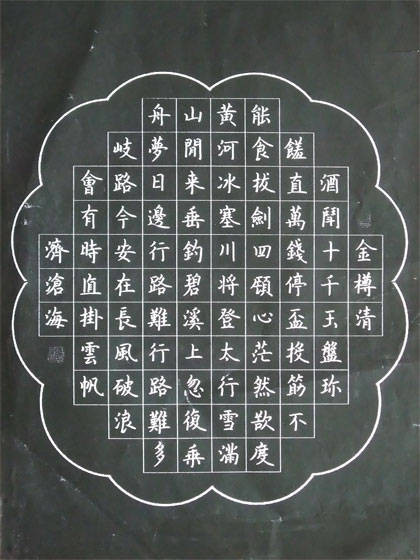 金樽清
酒鬥十千玉盤珎
饈直萬錢停盃投筯不
能食拔劍四頋心茫然欲度
黃河冰塞川將登太行雪滿
山閒来垂釣碧溪上忽復乘
舟夢日邊行路難行路難多
岐路今安在長風破浪
會有時直掛雲帆
濟滄海